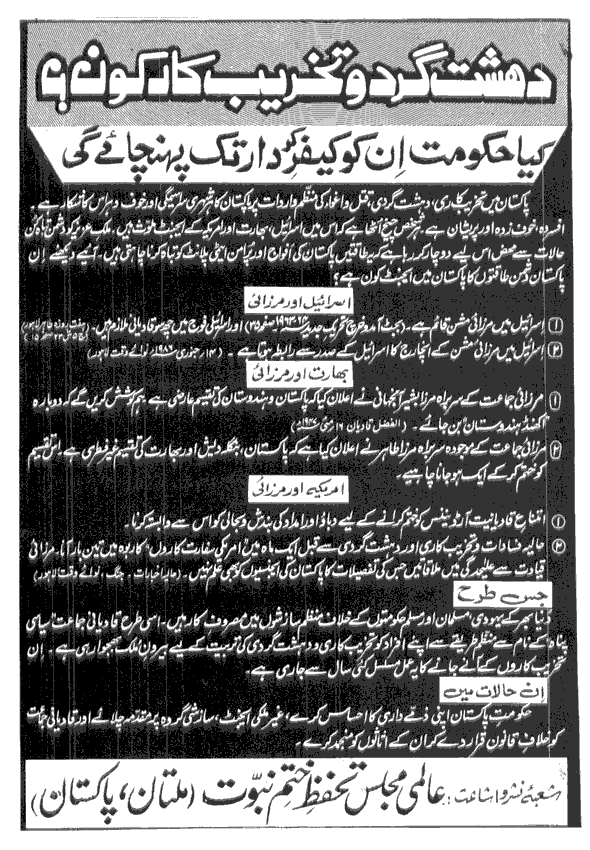 دہشت گرد و تخریب کار کون؟
کیا حکومت اِن کو کیفرِ کردار تک پہنچائے گی
پاکستان میں تخریب کاری، دہشت گردی، قتل و اغوا کی منظم واردات پر پاکستان کا شہری سراسیمگی اور خوف و ہراس کا شکار ہے۔
افسردہ، خوف زدہ اور پریشان ہے۔ ہر شخص چیخ اٹھا ہے کہ اس میں اسرائیل، بھارت اور امریکہ کے ایجنٹ ملوث ہیں۔ ملک عزیز کو دشمن تباہ کن
حالات سے محض اس لیے دوچار کر رہا ہے کہ یہ طاقتیں پاکستان کی افواج اور پرامن ایٹمی پلانٹ کو تباہ کرنا چاہتی ہیں۔ آیے دیکھیے اِن
پاکستان دشمن طاقتوں کا پاکستان میں ایجنٹ کون ہے؟
اسرائیل اور مرزائی
۱ اسرائیل میں مرزائی مشن قائم ہے۔ (بجٹ آمد و خرچ تحریک جدید صفحہ) اور اسرائیلی فوج میں چھ سو قادیانی ملازم ہیں۔
۲ اسرائیل میں مرزائی مشن کے انچارج کا اسرائیل کے صدر سے رابطہ ہوتا ہے۔ (جنوری ۱۹۸۶ء نوائے وقت لاہور)
بھارت اور مرزائی
۱ مرزائی جماعت کے سربراہ مرزا بشیر آنجہانی نے اعلان کیا کہ پاکستان و ہندوستان کی تقسیم عارضی ہے۔ ہم کوشش کریں گے کہ دوبارہ
اکھنڈ ہندوستان بن جائے۔ (الفضل قادیان ۱۶ مئی ۱۹۴۷ء)
۲ مرزائی جماعت کے موجودہ سربراہ مرزا طاہر نے اعلان کیا ہے کہ پاکستان، بنگلہ دیش اور بھارت کی تقسیم غیر فطری ہے۔ اس تقسیم
کو ختم کر کے ایک ہو جانا چاہیے۔
امریکہ اور مرزائی
۱ امتناعِ قادیانیت آرڈیننس کو ختم کرانے کے لیے دباؤ اور امداد کی بندش و بحالی کو اس سے وابستہ کرنا۔
۲ حالیہ فسادات و تخریب کاری اور دہشت گردی سے قبل ایک ماہ میں امریکی سفارت کاروں کا ربوہ میں تین بار آنا۔ مرزائی
قیادت سے علیحدگی میں ملاقاتیں جس کی تفصیلات کا پاکستان کی ایجنسیوں کو بھی علم نہیں۔ (حالیہ اخبارات۔ جنگ، نوائے وقت لاہور)
جس طرح
دنیا بھر کے یہودی مسلمان اور مسلم حکومتوں کے خلاف منظم سازشوں میں مصروف کار ہیں۔ اسی طرح قادیانی جماعت سیاسی
پناہ کے نام سے منظم طریقے سے اپنے افراد کو تخریب کاری و دہشت گردی کی تربیت کے لیے بیرون ملک بھجوا رہی ہے۔ اِن
تخریب کاروں کے آنے جانے کا یہ عمل مسلسل کئی سال سے جاری ہے۔
اِن حالات میں
حکومت پاکستان اپنی ذمے داری کا احساس کرے، غیر ملکی ایجنٹ، سازشی گروہ پر مقدمہ چلائے اور قادیانی جماعت
کو خلافِ قانون قرار دے کر ان کے اثاثوں کو منجمد کرے۔
شعبۂ نشر و اشاعت: عالمی مجلس تحفظ ختم نبوّت (ملتان، پاکستان)